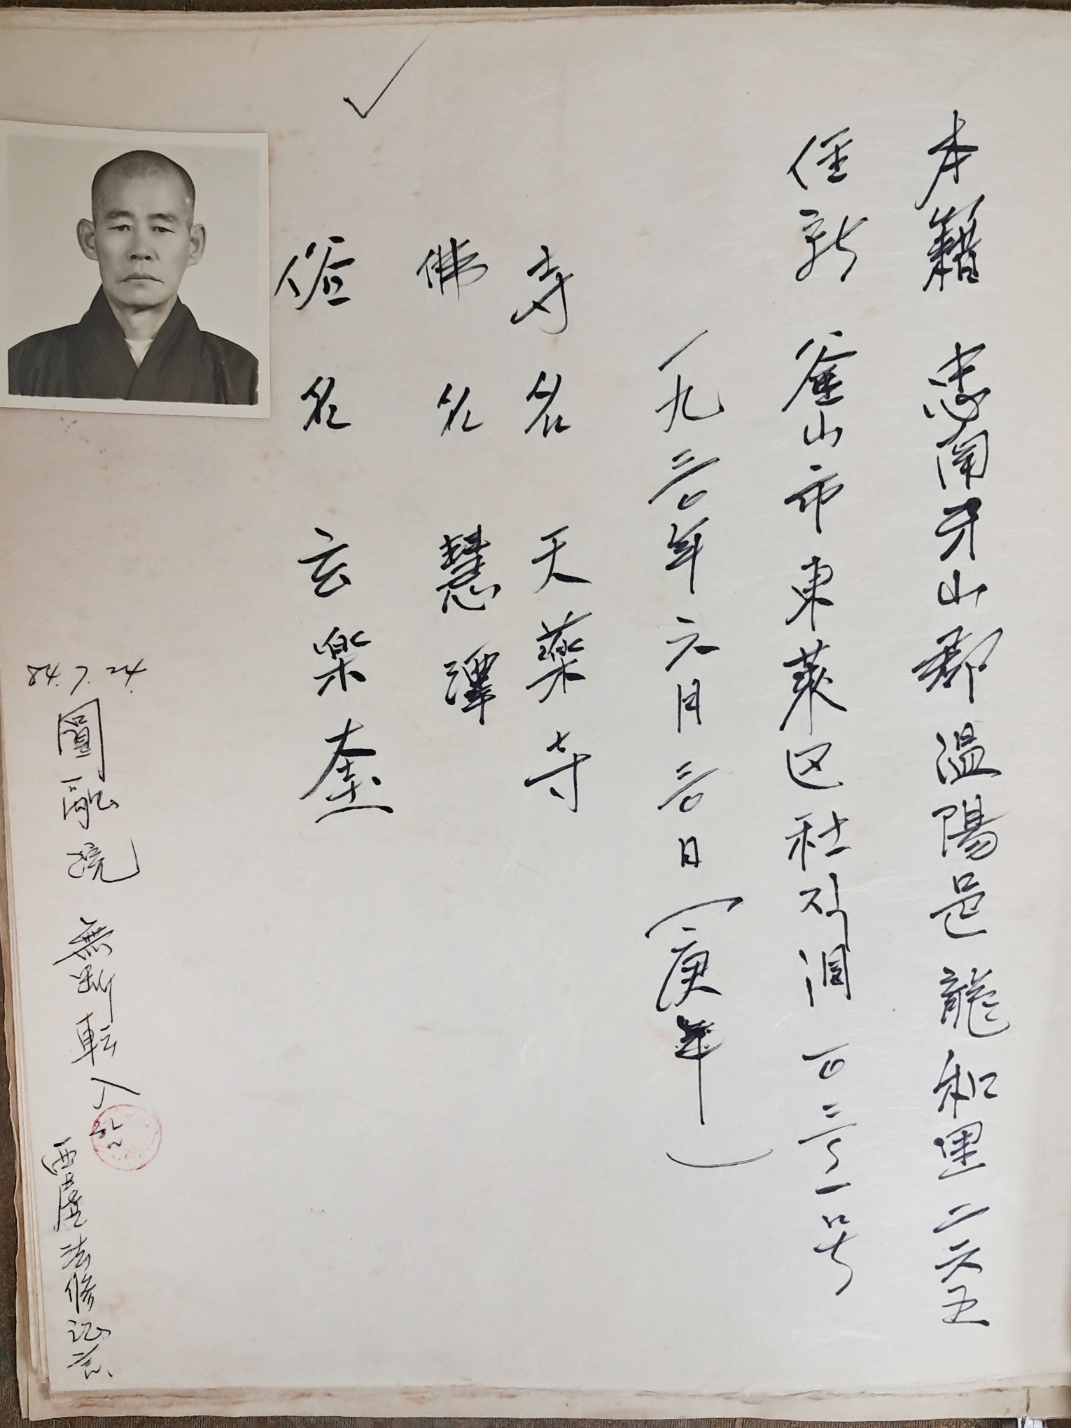 本籍 忠南牙山郡溫陽邑龍和里二六五
任所 釜山市東萊区社직洞 百三 一号
一九三〇年六月 三〇日(庚年)
寺名 天藥寺
佛名 慧潭
俗名 玄樂奎
84. 7. 24.
圓融院 無断転入
法修